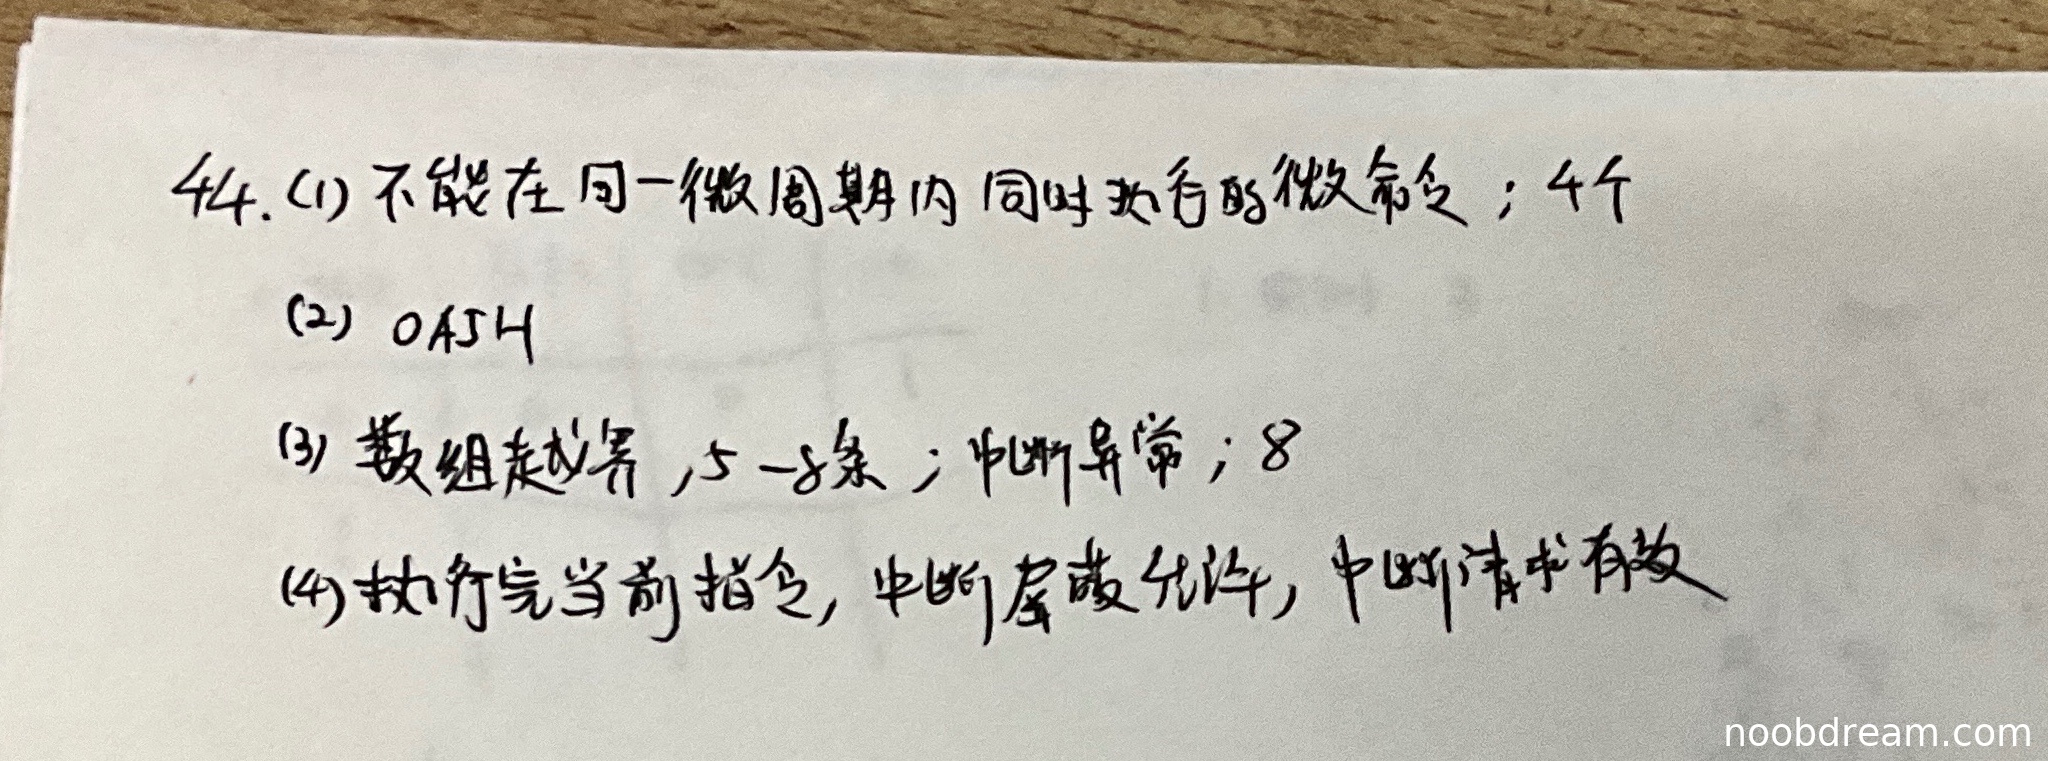 44. (1) 不能在同一微周期内同时执行的微命令；4个
(2) 0A5H
(3) 数组越界，5-8条；中断异常；8
(4) 执行完当前指令，中断屏蔽允许，中断请求有效
noobdream.com